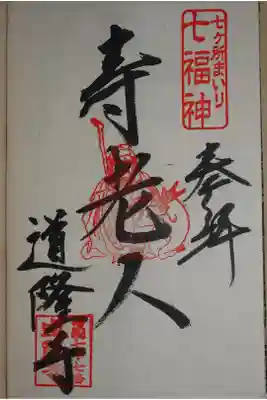 七ケ所まいり
七福神
奉拝
寿老人
道隆寺